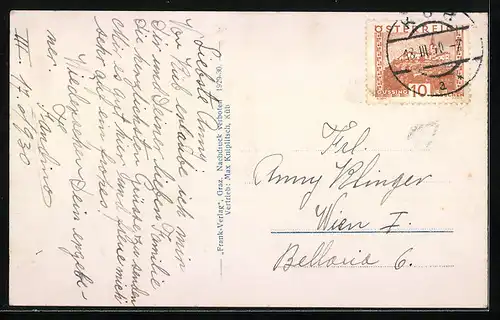 Liebste Anny!
Von Küb erlaube ich mir
Dir und Deiner lieben Familie
die herzlichsten Grüsse zu senden
Mir es gut hier und freue mich
sehr auf ein frohes
Wiedersehn Dein ergebe-
ner.
III. 17. 1930
"Frank-Verlag", Graz. Nachdruck verboten. 1929-30.
Vertrieb: Max Kniplitsch, Küb
ÖSTERREICH
GÜSSING
10
III. 30
Frl.
Anny Klinger
Wien I.
Bellaria 6.